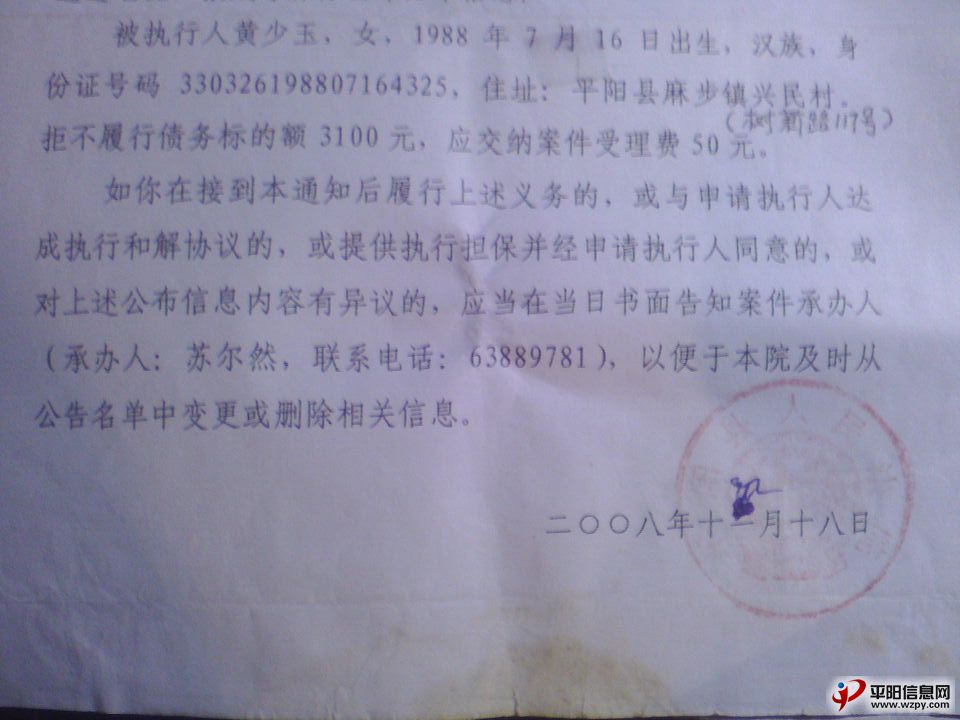 被执行人黄少玉，女，1988 年 7 月 16 日出生，汉族，身
份证号码 330326198807164325，住址：平阳县麻步镇兴民村。
(树新路117号)
拒不履行债务标的额 3100 元，应交纳案件受理费 50 元。
如你在接到本通知后履行上述义务的，或与申请执行人达
成执行和解协议的，或提供执行担保并经申请执行人同意的，或
对上述公布信息内容有异议的，应当在当日书面告知案件承办人
（承办人：苏尔然，联系电话：63889781），以便于本院及时从
公告名单中变更或删除相关信息。
二〇〇八年十二月十八日
平阳信息网
www.wzpy.com